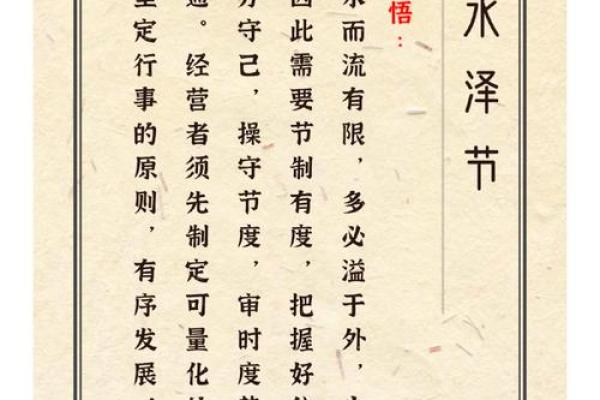 水泽节
悟：
水而流有限，多必溢于外，
因此需要节制有度，把握好
分守己，操守节度，审时度势
通。经营者须先制定可量化
定行事的原则，有序发展